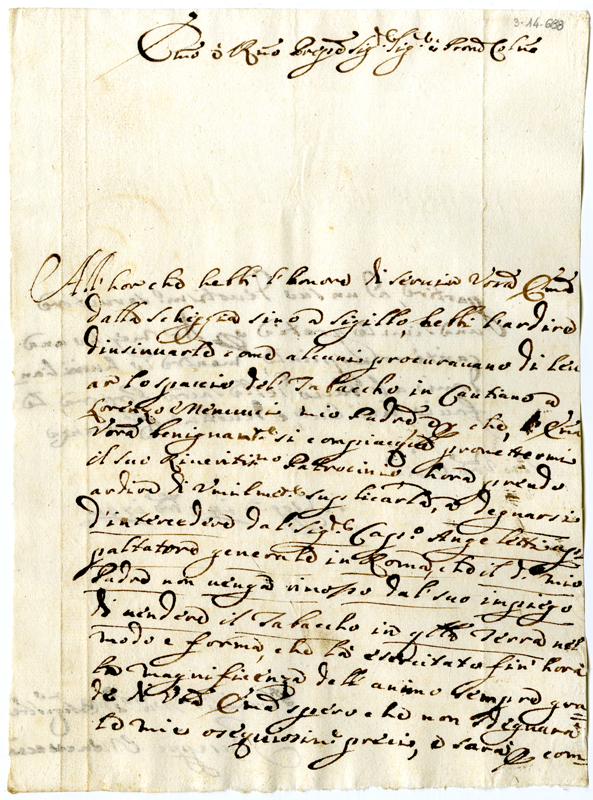 3-14-688
Emo e Rmo Sig.r Sig.r e Pron Colmo
All'hor che hebbi l'honore di servire Vora Emza
dalla Scheggia sino a Sigillo, hebbi l'ardire
d'insinuarle come alcuni procuravano di leu
ar lo spaccio del Tabaccho in Cantiano a
Lorenzo Mencucci mio Padre che, l'Emza
Vora benignamte si compiacque promettermi
il suo Riveritismo Patrocinio, hora prendo
ardire di Umilmte suplicarla, a degnarsi
d'intercedere dal Sigre Capo Angeletti ap
paltatore generale in Roma, che il do mio
Padre non venga rimosso dal suo impiego
di vendere il Tabaccho in qlla Terra nel
modo e forma, che ha esercitato fin' hora
la magnificenza dell'animo sempre gra=
de di Vra Emza spero che non sdegnarà
le mie ossequiosime preci, e sarà com